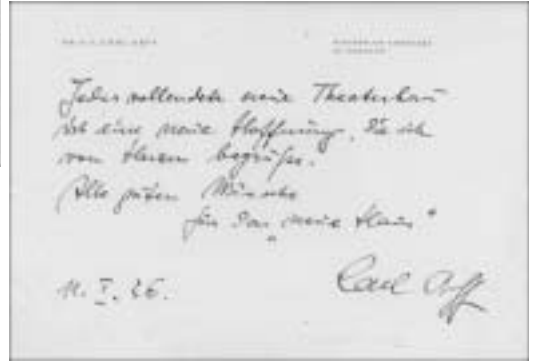 Jeder vollendete neue Theaterbau
ist eine neue Hoffnung, die ich
von Herzen begrüße.
Alle guten Wünsche
für das „neue Haus“
Carl Orff